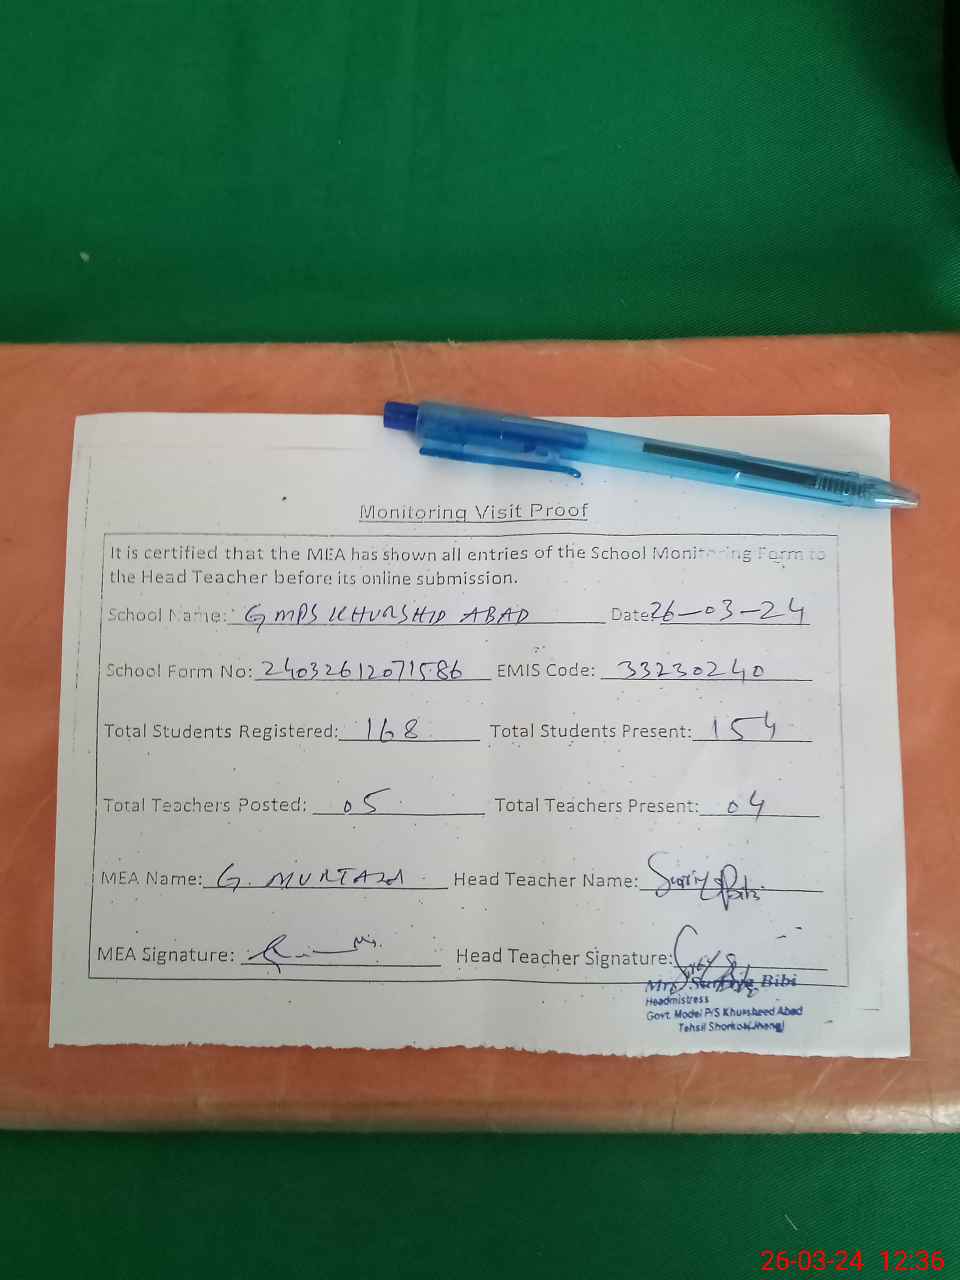 Monitoring Visit Proof
It is certified that the MEA has shown all entries of the School Monitoring Form to
the Head Teacher before its online submission.
School Name: GMPS KHURSHID ABAD Date: 26-03-24
School Form No: 24032612071586 EMIS Code: 33230240
Total Students Registered: 168 Total Students Present: 154
Total Teachers Posted: 05 Total Teachers Present: 04
MEA Name: G. MURTAZA Head Teacher Name: Surriya Bibi
MEA Signature: Head Teacher Signature:
Mrs. Bibi
Headmistress
Govt. Model P/S Khursheed Abad
Tehsil Shorkot(Jhang)
26-03-24 12:36